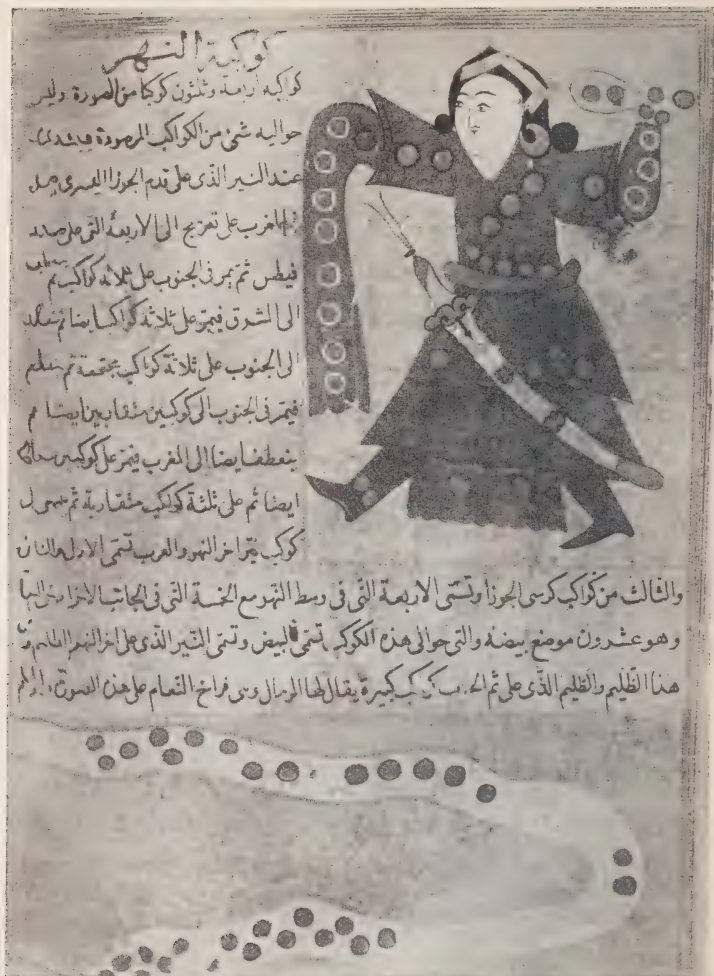 كوكبة النهر
كواكبه اربعة وثلثون كوكبا من الصورة وليس
حواليه شئ من الكواكب المرصودة فيبتدى
عند النير الذى على قدم الجوزا اليسرى
المغرب على تعريج الى الاربعة التى على صدر
قيطس ثم يمر فى الجنوب على ثلاثة كواكب ثم
الى الشرق فيمر على ثلاثة كواكب ايضا ثم
الى الجنوب على ثلاثة كواكب مجتمعة ثم
فيمر فى الجنوب الى كوكبين متقاربين ايضا ثم
ينعطف ايضا الى المغرب فيمر على كوكبين
ايضا ثم على ثلثة كواكب متقاربة ثم
كوكب نير اخر النهر والعرب تسمى الاول والثانى
والثالث من كواكب كرسى الجوزا وتسمى الاربعة التى فى وسط النهر مع الخمسة التى فى الجانب الاخر
وهو عشرون موضع بيضه والتى حوالى هذه الكوكب تسمى البيض وتسمى النير الذى على اخر النهر الظليم
هذا الظليم والظليم الذى على ثم كواكب كبيرة يقال لها الريال وهى فراخ النعام على هذه الصورة